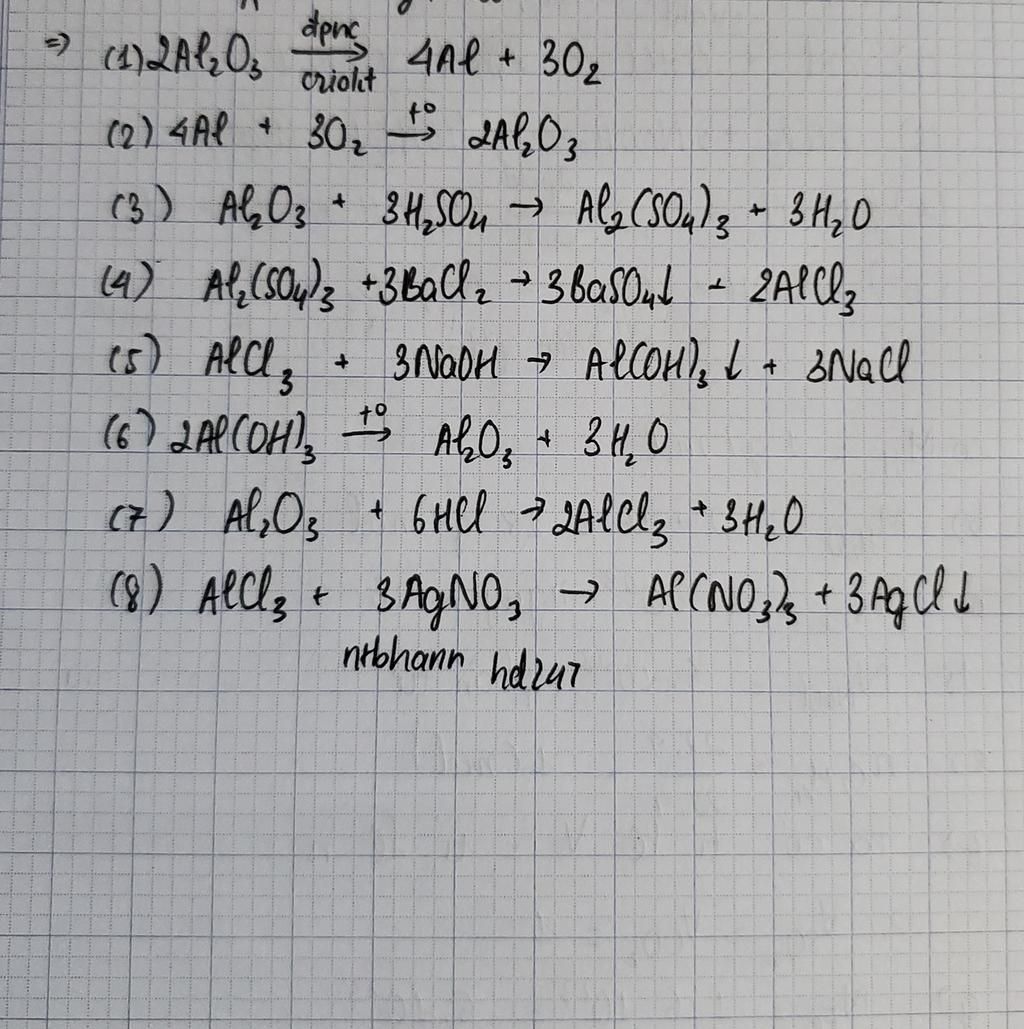 => (1) 2Al₂O₃ —đpnc/criolit→ 4Al + 3O₂
(2) 4Al + 3O₂ —t°→ 2Al₂O₃
(3) Al₂O₃ + 3H₂SO₄ → Al₂(SO₄)₃ + 3H₂O
(4) Al₂(SO₄)₃ + 3BaCl₂ → 3BaSO₄↓ + 2AlCl₃
(5) AlCl₃ + 3NaOH → Al(OH)₃↓ + 3NaCl
(6) 2Al(OH)₃ —t°→ Al₂O₃ + 3H₂O
(7) Al₂O₃ + 6HCl → 2AlCl₃ + 3H₂O
(8) AlCl₃ + 3AgNO₃ → Al(NO₃)₃ + 3AgCl↓
ntbhann hd247